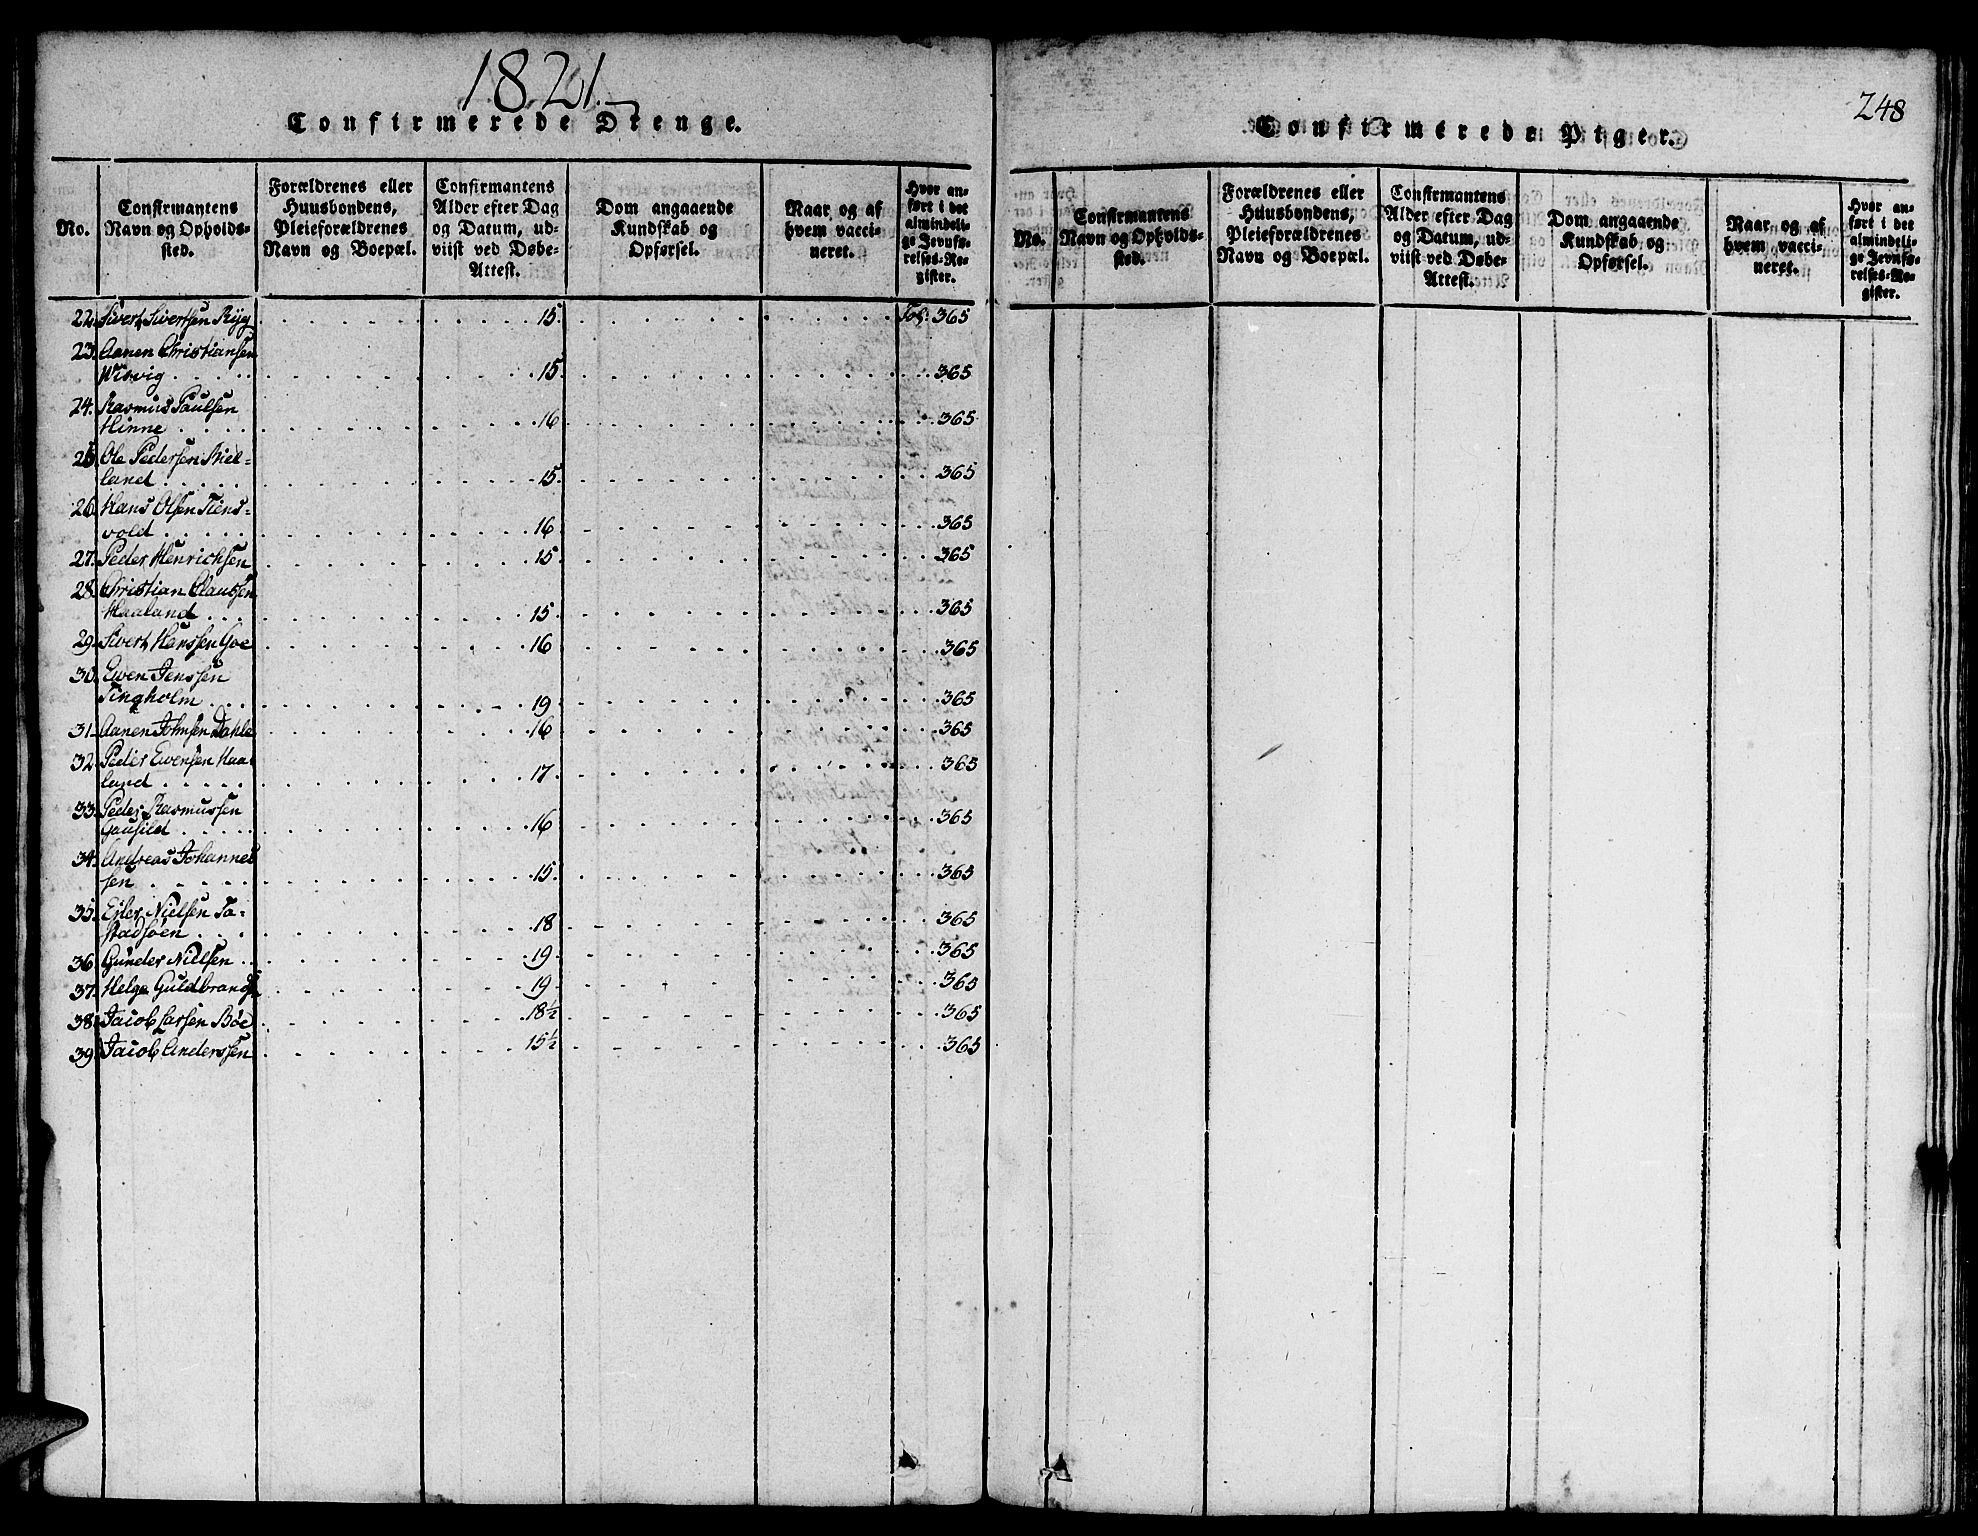 1821.
Confirmerede Drenge.
No.
Confirmantens
Navn og Opholds-
sted.
Forældrenes eller
Huusbondens,
Pleieforældrenes
Navn og Boepæl.
Confirmantens
Alder efter Dag
og Datum, ud-
viist ved Døbe-
Attest.
Dom angaaende
Kundskab og
Opførsel.
Naar og af
hvem vacci-
neret.
Hvor an-
ført i det
almindeli-
ge Jevnfø-
relses-Re-
gister.
22. Sivert Sivertsen Ryg 15. Fol: 365
23. Aanen Christiansen
Wisvig 15 365
24. Rasmus Paulsen
Hinne 16 365
25 Ole Pedersen Kiel=
land 15. 365
26. Hans Olsen Tiens=
vold 16 365
27. Peder Henrichsen 15 365
28. Christian Clausen
Haaland 15 365
29. Sivert Hanssen Goe 16 365
30. Ewen Jenssen
Tingholm 19 365
31. Aanen Johnsen Dahle 16 365
32. Peder Ewensen Haa
land 17 365
33. Peder Rasmussen
Gausild 16 365
34. Andreas Johannes
sen 15. 365
35. Eiler Nielsen Ta-
stadsøen 18 365
36. Gunder Nielsen 19 365
37. Helge Guldbrands 19 365
38. Jacob Larsen Bøe 18½ 365
39. Jacob Anderssen 15½ 365
248
Confirmerede Piger.
No.
Confirmantens
Navn og Opholds-
sted.
Forældrenes eller
Huusbondens,
Pleieforældrenes
Navn og Boepæl.
Confirmantens
Alder efter Dag
og Datum, ud-
viist ved Døbe-
Attest.
Dom angaaende
Kundskab og
Opførsel.
Naar og af
hvem vacci-
neret.
Hvor an-
ført i det
almindeli-
ge Jevnfø-
relses-Re-
gister.